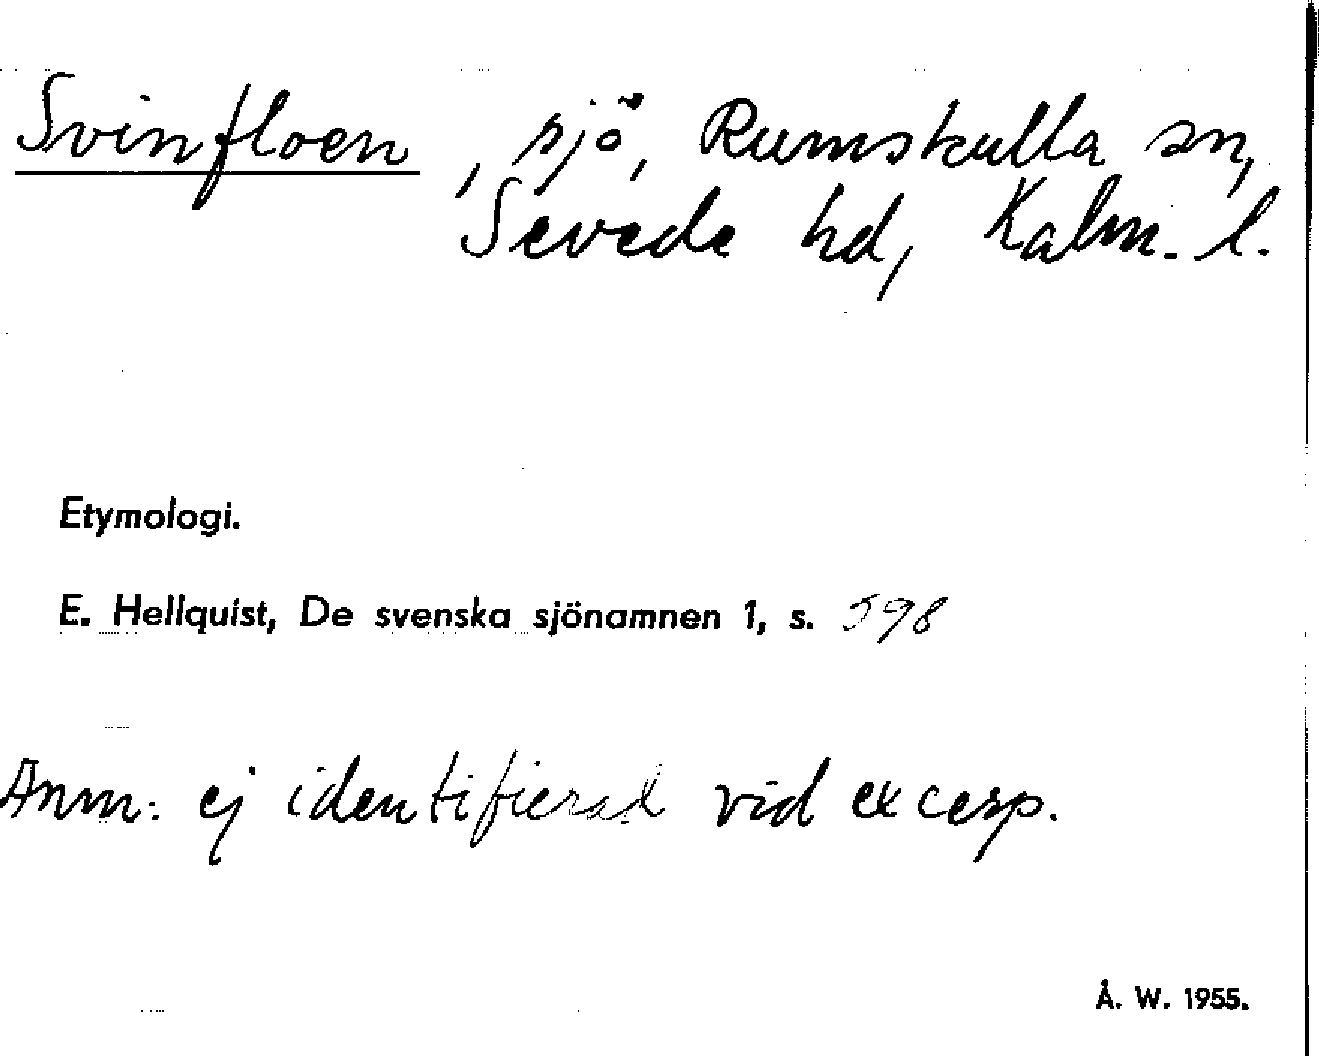 Svinfloen, sjö, Rumskulla sn,
Sevede hd, Kalm. l.
Etymologi.
E. Hellquist, De svenska sjönamnen 1, s. 598
Anm: ej identifierad vid excerp.
Å. W. 1955.